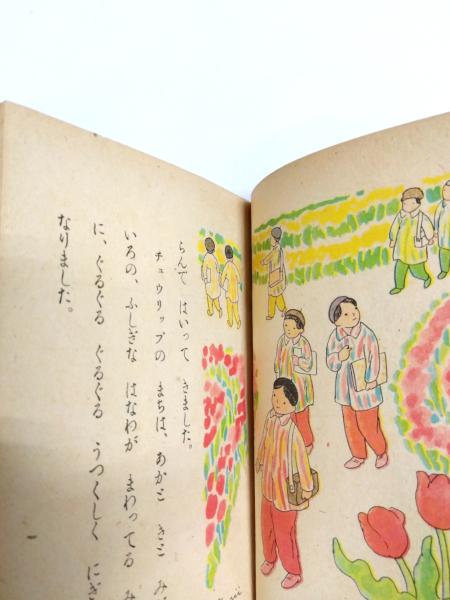 らんで はいって きました。
チュウリップの まちは、あかと きと み
いろの、ふしぎな はなわが まわってる み
に、ぐるぐる ぐるぐる うつくしく にぎ
なりました。